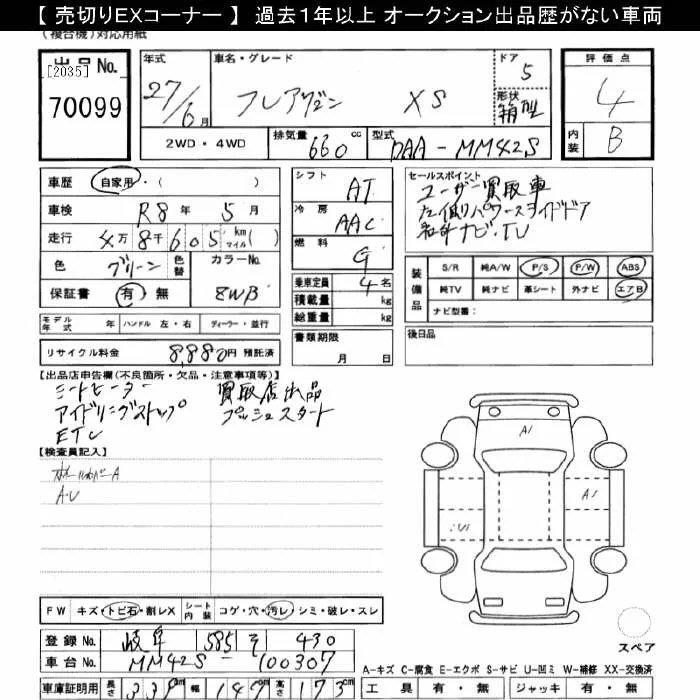 【 売切りEXコーナー 】 過去1年以上 オークション出品歴がない車両
(複合機)対応用紙
出品No. [2035] 70099
年式 27/6月
車名・グレード フレアワゴン XS
ドア 5
形状 箱型
評価点 4
内装 B
2WD・4WD 排気量 660 cc 型式 DAA-MM42S
車歴 自家用・( )
車検 R8年 5月
走行 4万8千605 km マイル( )
色 グリーン 色替 カラーNo. ZWB
保証書 有・無
シフト AT
冷房 AAC
燃料 G
乗車定員 4名
積載量 kg
総重量 kg
書類期限 月 日
セールスポイント
ユーザー買取車
左側パワースライドドア
社外ナビ・TV
装備品 S/R 純A/W P/S P/W ABS
純TV 純ナビ 革シート 外ナビ エアB
ナビ型番:
モデル年式 年 ハンドル 左・右 ディーラー・並行
後日品
リサイクル料金 8,880円 預託済
【出品店申告欄(不良箇所・欠品・注意事項等)】
シートヒーター 買取店出品
アイドリングストップ プッシュスタート
ETC
【検査員記入】
A・U
A1
A1
FW キズ・トビ石・割レX シート内装 コゲ・穴・汚レ・シミ・破レ・スレ
登録No. 岐阜 585 そ 430
車台No. MM42S-100307
車庫証明用 長さ 339cm 幅 147cm 高さ 173cm
スペア
A-キズ C-腐食 E-エクボ S-サビ U-凹ミ W-補修 XX-交換済
工具 有・無 ジャッキ 有・無